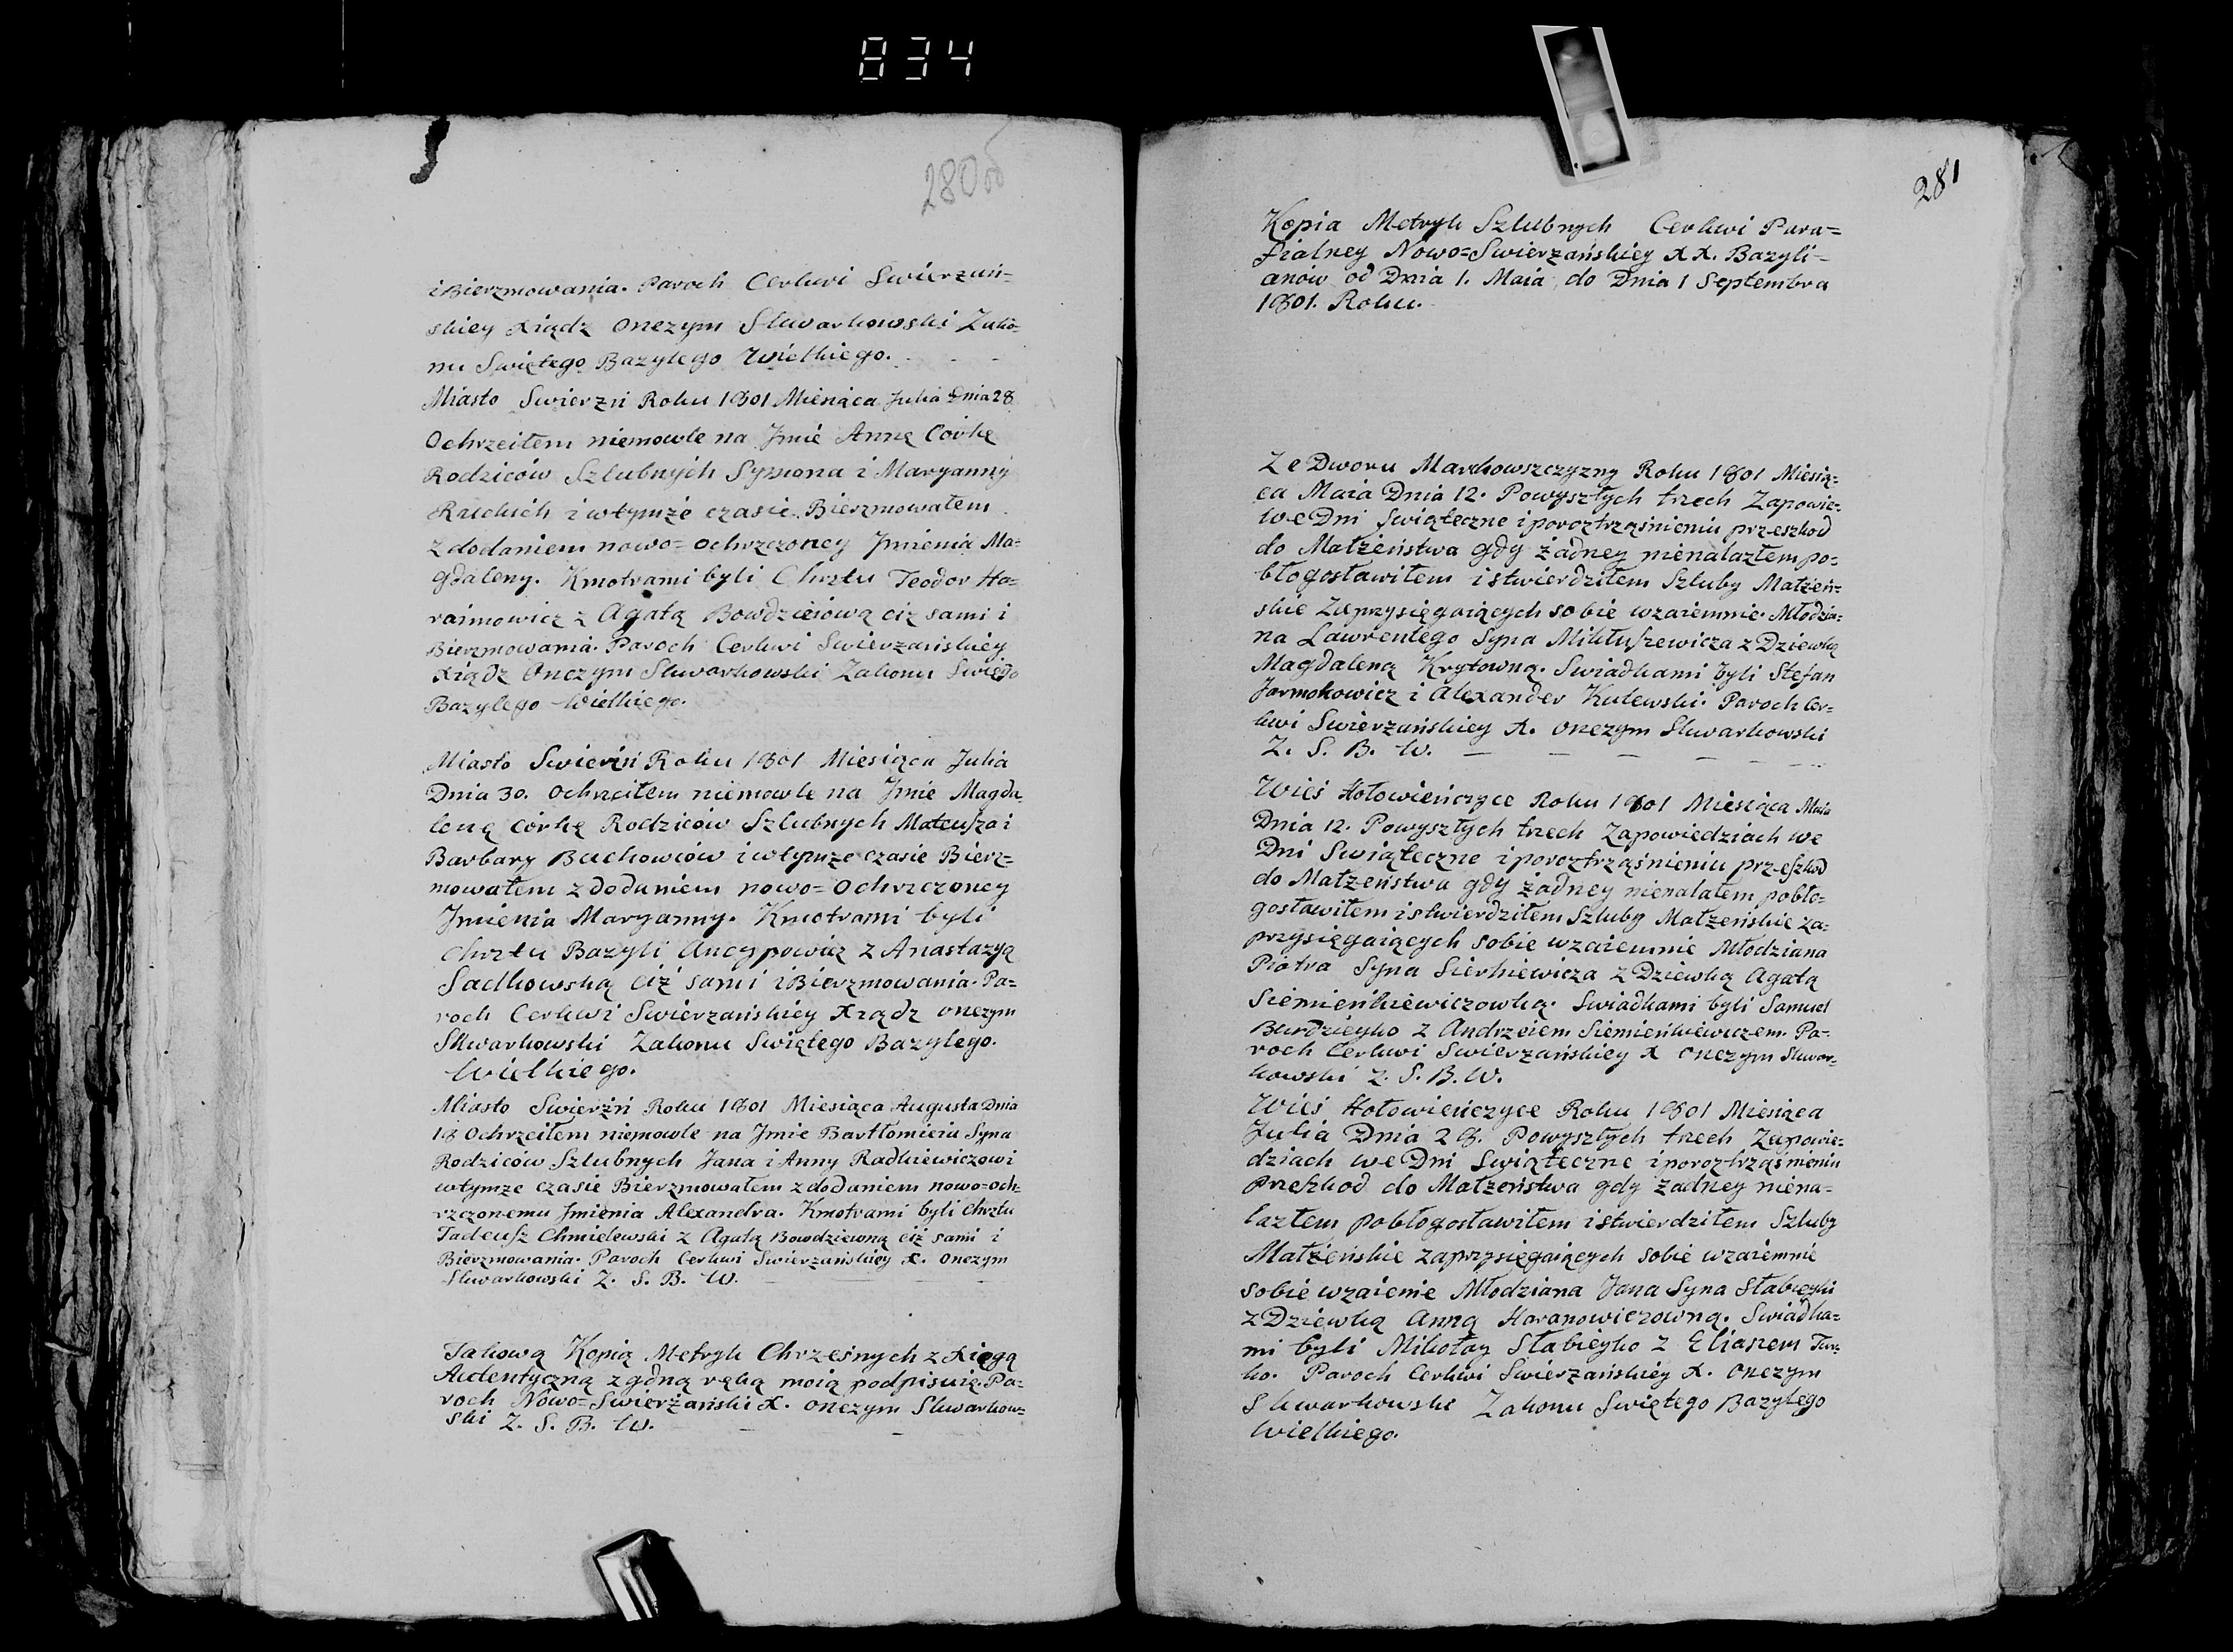 834
280 об
i Bierzmowania. Paroch Cerkwi Swierzań=
skiey Xiądz Onezym Skwarkowski Zako=
nu Swiętego Bazylego Wielkiego.
Miasto Swierzń Roku 1801 Miesiąca Julia Dnia 28
Ochrzciłem niemowle na Jmie Annę Corkę
Rodziców Szlubnych Symona i Maryanny
i wtymże czasie Bierzmowałem
z dodaniem nowo=ochrzczoney Jmienia Ma=
gdaleny. Kmotrami byli Chrztu Teodor Ha=
raimowicz z Agatą Bowdzieiową ciż sami i
Bierzmowania. Paroch Cerkwi Swierzańskiey
Xiądz Onezym Skwarkowski Zakonu Swięgo
Bazylego Wielkiego.
Miasto Swierzń Roku 1801 Miesiąca Julia
Dnia 30. Ochrzciłem niemowle na Jmie Magda
lenę córkę Rodziców Szlubnych Mateusza i
Barbary Buchowców i wtymże czasie Bierz=
mowałem z dodaniem nowo=ochrzczoney
Jmienia Maryanny. Kmotrami byli
Chrztu Bazyli Ancypowicz z Anastazyą
Sadkowską ciż sami i Bierzmowania. Pa=
roch Cerkwi Swierzańskiey Xiądz Onezym
Skwarkowski Zakonu Swiętego Bazylego
Wielkiego.
Miasto Swierzń Roku 1801 Miesiąca Augusta Dnia
18 Ochrzciłem niemowle na Jmie Bartłomieia Syna
Rodziców Szlubnych Jana i Anny Radkiewiczow i
wtymże czasie Bierzmowałem z dodaniem nowo=och=
rzczonemu Jmienia Alexandra. Kmotrami byli Chrztu
Tadeusz Chmielewski z Agatą Bowdziewną ciż sami i
Bierzmowania. Paroch Cerkwi Swierzańskiey X. Onezym
Skwarkowski Z. S. B. W.
Takową Kopią Metryk Chrzesnych z Xięgą
Autentyczną zgdną ręką moią podpisuię. Pa=
roch Nowo=Swierżański X. Onezym Skwarkow=
ski Z. S. B. W.
281
Kopia Metryk Szlubnych Cerkwi Para=
fialney Nowo=Swierzańskiey XX. Bazyli=
anów od Dnia 1. Maia do Dnia 1 Septembra
1801. Roku.
Ze Dworu Markowszczyzny Roku 1801 Miesią=
ca Maia Dnia 12. Powyszłych trzech Zapowie=
we Dni Swiąteczne i poroztrząśnieniu przeszkod
do Małżeństwa gdy żadney nienalazłem po=
błogosławiłem i stwierdziłem Szluby Małżeń=
skie Zaprzysięgaiących sobie wzaiemnie. Młodzia=
na Lawrentego Syna Mikłuszewicza z Dziewką
Magdaleną Krytowną. Swiadkami byli Stefan
Jarmokowicz i Alexander Kulewski. Paroch Cer=
kwi Swierzańskiey X. Onezym Skwarkowski
Z. S. B. W.
Wieś Hołowieńczyce Roku 1801 Miesiąca Maia
Dnia 12. Powyszłych trzech Zapowiedziach we
Dni Swiąteczne i poroztrząśnieniu przeszkod
do Małżeństwa gdy żadney nienalałem pobło=
gosławiłem i stwierdziłem Szluby Małżeńskie za=
przysięgaiących sobie wzaiemnie Młodziana
Piotra Syna Sierkiewicza z Dziewką Agatą
Siemieńkiewiczowką. Swiadkami byli Samuel
Burdzieyko z Andrzeiem Siemieńkiewiczem. Pa=
roch Cerkwi Swierzańskiey X Onezym Skwar=
kowski Z. S. B. W.
Wieś Hołowieńczyce Roku 1801 Miesiąca
Julia Dnia 28. Powyszłych trzech Zapowie=
dziach we Dni Swiąteczne i poroztrząśnieniu
przeszkod do Małżeństwa gdy żadney niena=
lazłem pobłogosławiłem i stwierdziłem Szluby
Małżeńskie zaprzysięgaiących sobie wzaiemnie
sobie wzaiemie Młodziana Jana Syna Słabieyki
z Dziewką Anną Haranowiczowną. Swiadka=
mi byli Mikołay Słabieyko z Eliaszem Tur=
ko. Paroch Cerkwi Swierzańskiey X. Onezym
Skwarkowski Zakonu Swiętego Bazylego
Wielkiego.